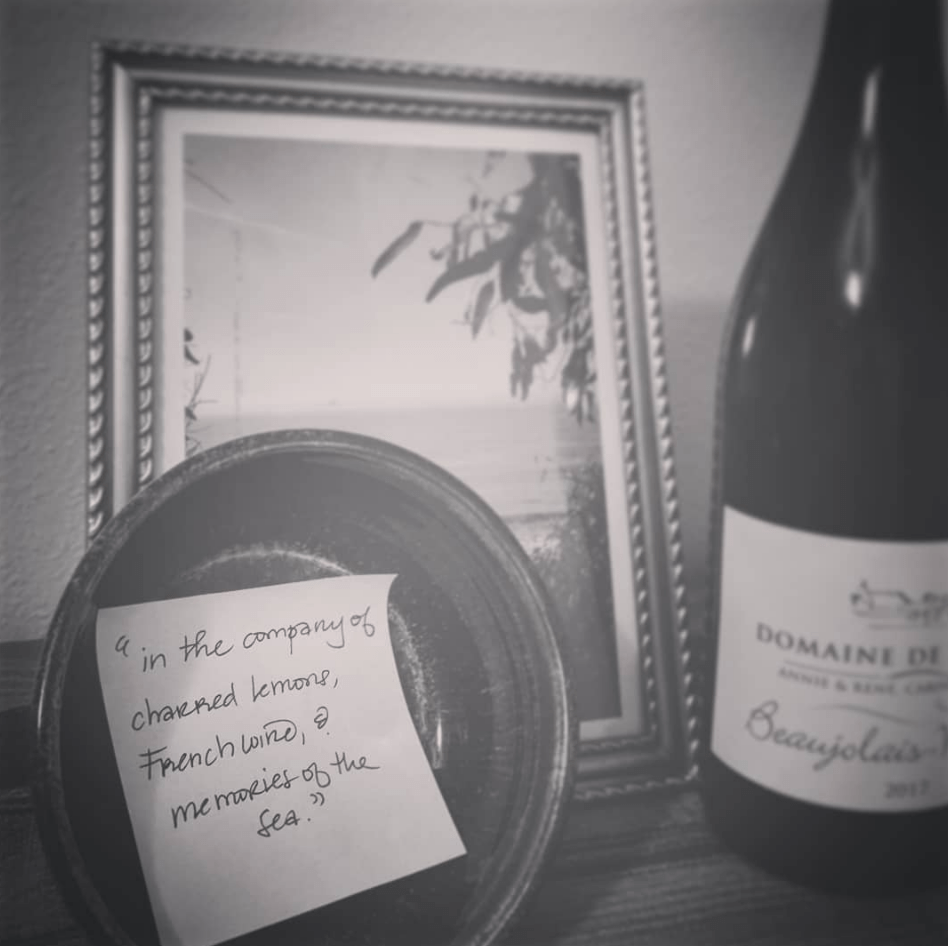 "in the company of
charred lemons,
French wine, &
memories of the
sea."
DOMAINE DE
ANNIE & RENÉ
Beaujolais
2017